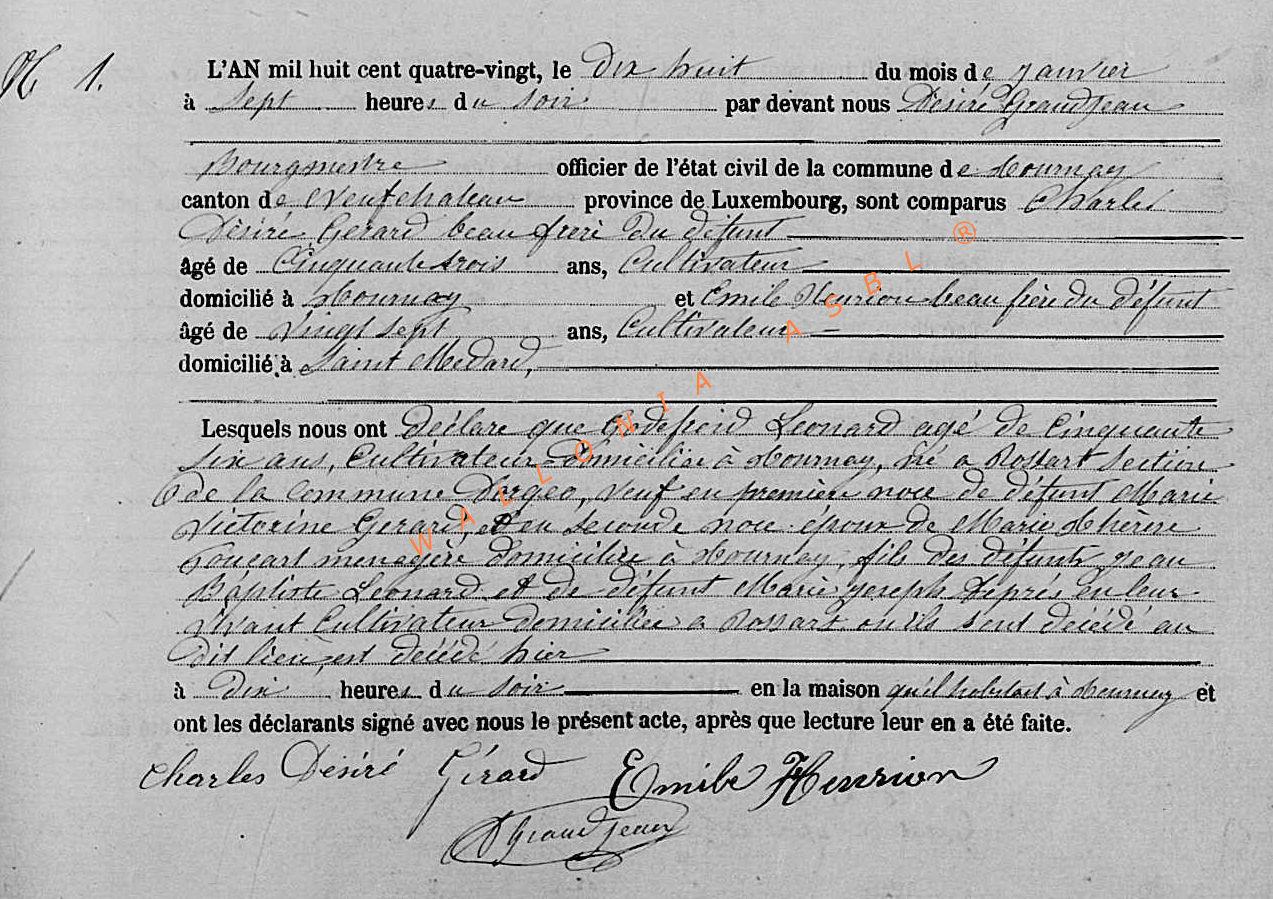 N° 1.
L'AN mil huit cent quatre-vingt, le dix huit du mois de janvier
à sept heures du soir par devant nous Désiré Grandjean
Bourgmestre officier de l'état civil de la commune de Tournay
canton de Neufchateau province de Luxembourg, sont comparus Charles
Désiré Gerard beau frere du défunt
âgé de Cinquante trois ans, Cultivateur
domicilié à Tournay et Emile Henrion beau frère du défunt
âgé de Vingt sept ans, Cultivateur
domicilié à Saint Medard,
Lesquels nous ont déclare que Godefroid Leonard agé de Cinquante
six ans, Cultivateur domicilié à Tournay, né a Rossart section
de la Commune Dorgeo, veuf en première noce de défunt Marie
Victorine Gerard, et en seconde noce époux de Marie Thérèse
menagère domicilire à Tournay, fils des défunts jean
Baptiste Leonard et de défunt Marie joseph Deprés en leur
vivant Cultivateur domiciliée a Rossart ou ils sont décédé au
dit lieu, est décédé hier
à dix heures du soir en la maison qu'il habitait à Tournay et
ont les déclarants signé avec nous le présent acte, après que lecture leur en a été faite.
Charles Désiré Gérard Emile Henrion
D Grandjean
WALLONIA ASBL ®